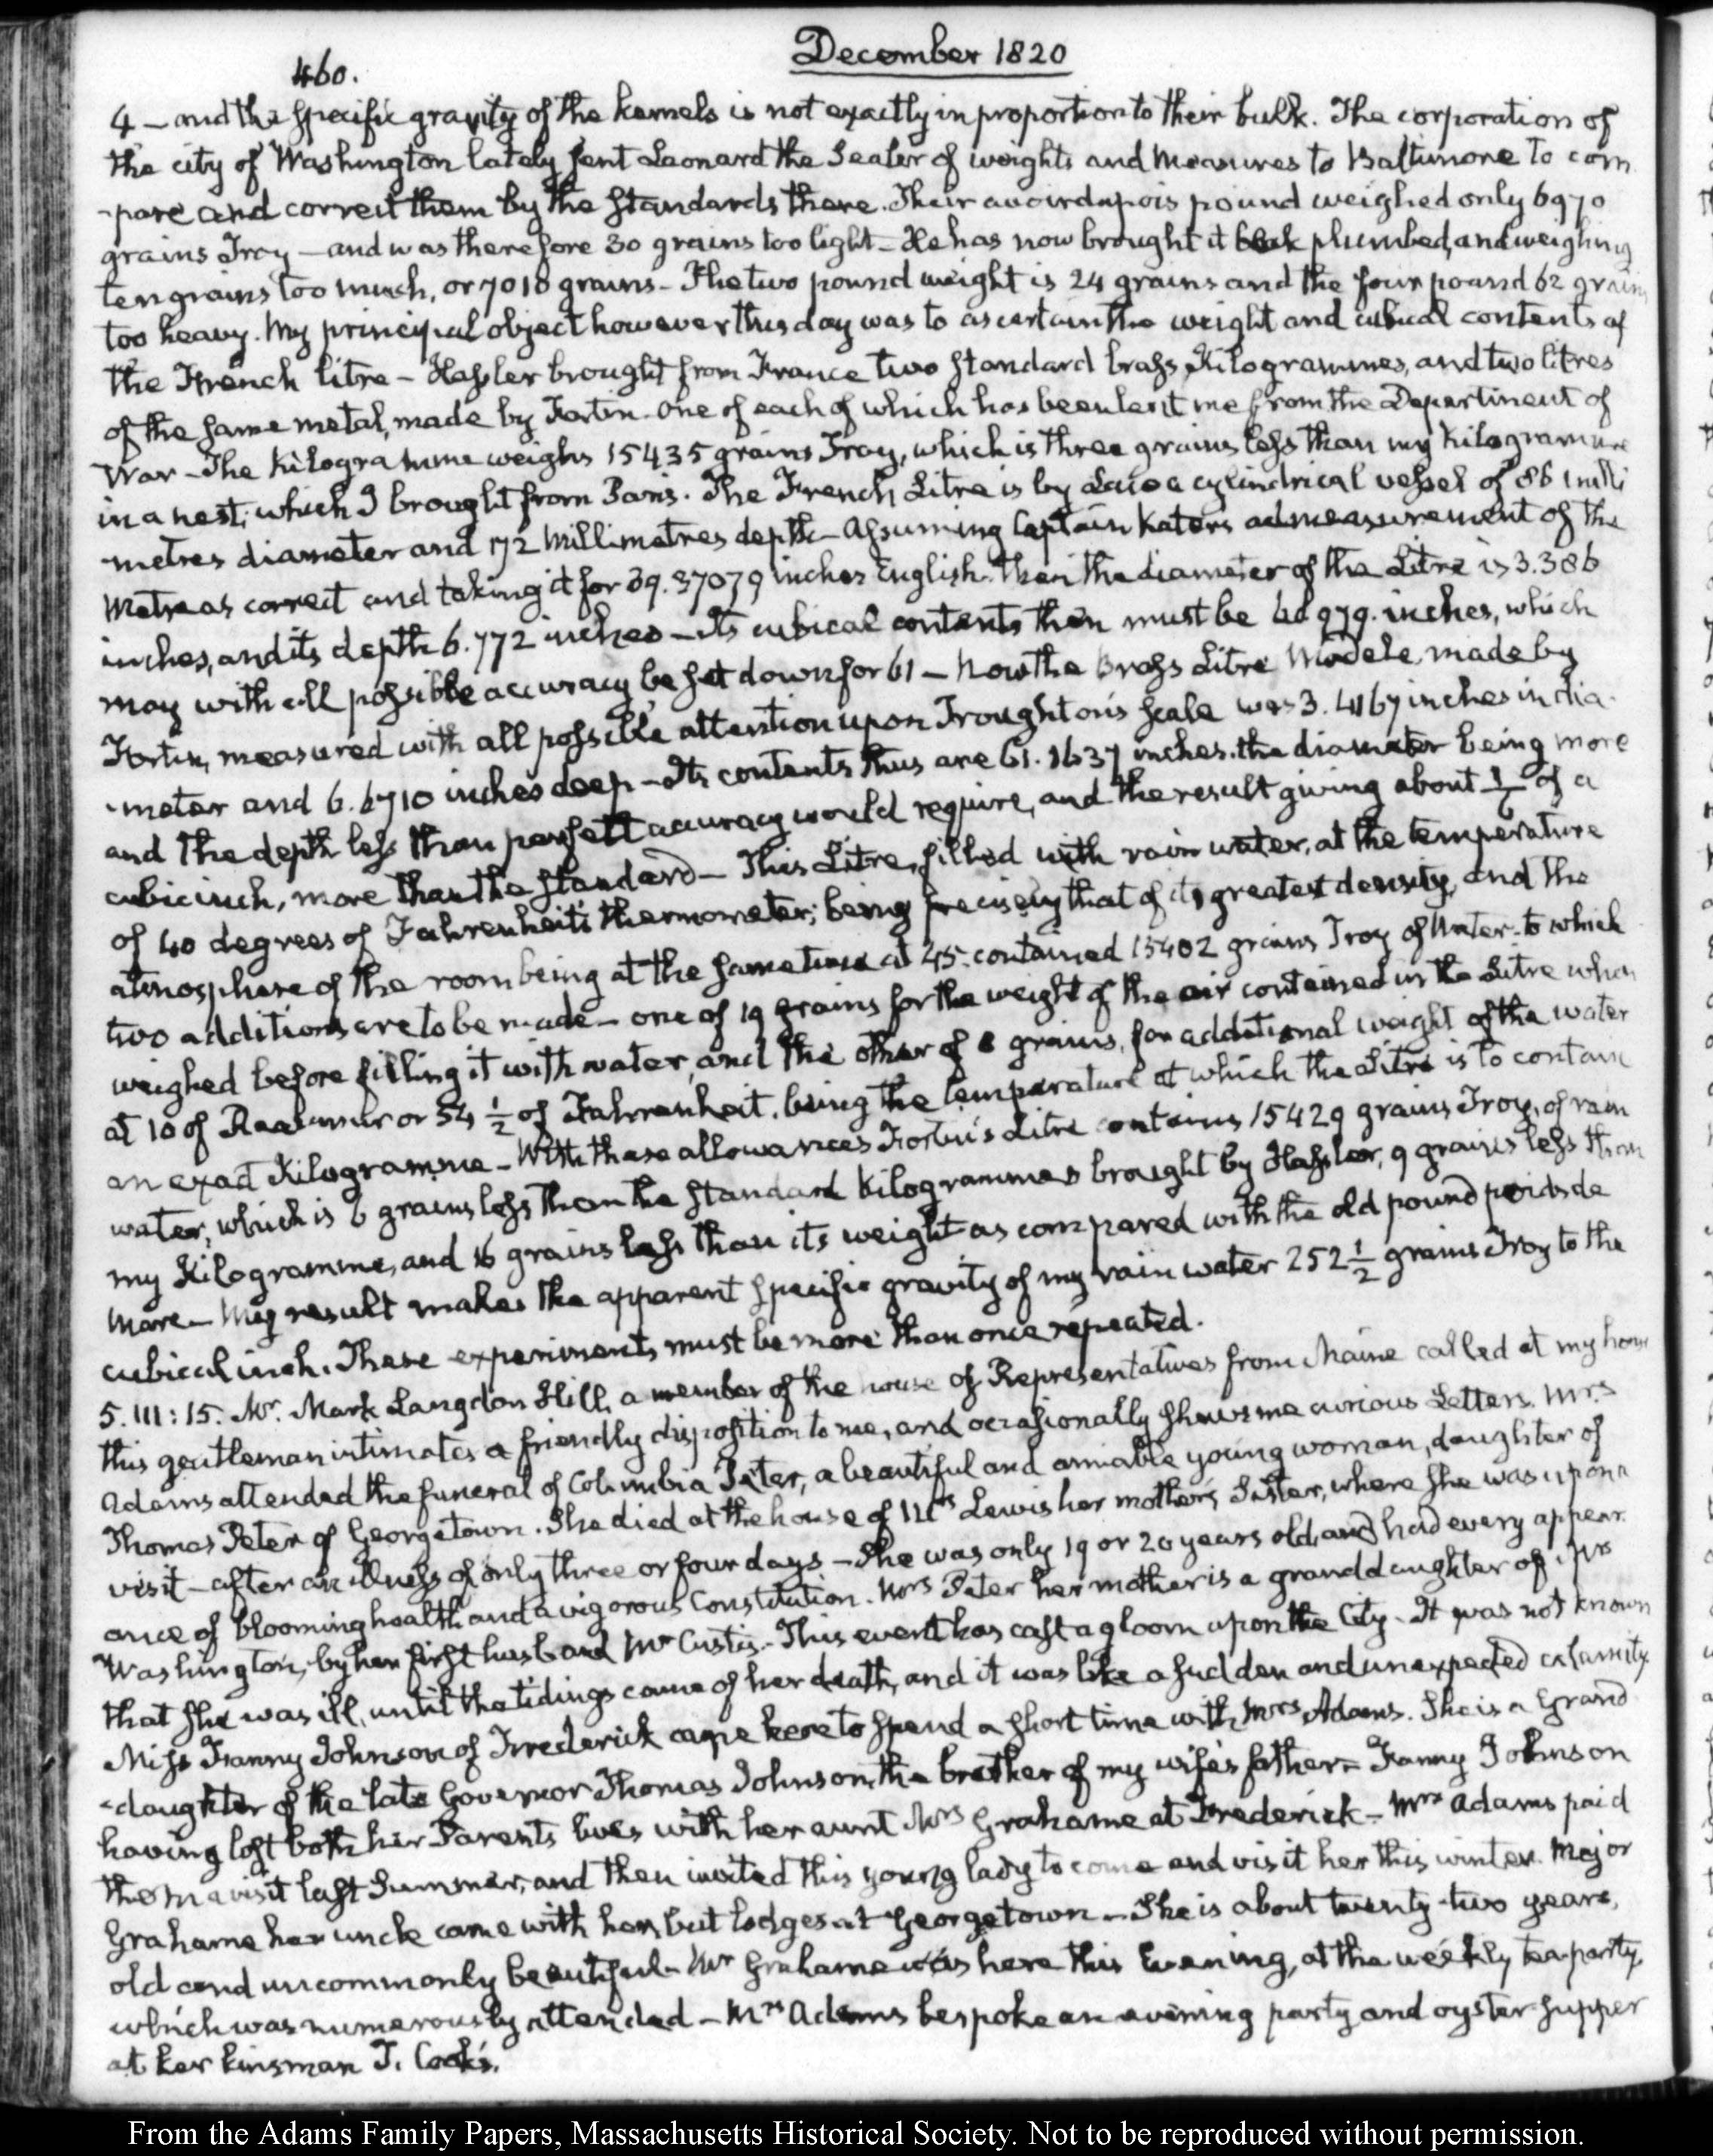 460.
December 1820
4 – and the specific gravity of the kernels is not exactly in proportion to their bulk. The corporation of
the city of Washington lately sent Leonard the Sealer of weights and measures to Baltimore to com
-pare and correct them by the standards there. Their avoirdupois pound weighed only 6970
grains Troy – and was therefore 30 grains too light – He has now brought it back plumbed, and weighing
ten grains too much, or 7010 grains – The two pound weight is 24 grains and the four pound 62 grains
too heavy. My principal object however this day was to ascertain the weight and cubical contents of
the French litre – Hassler brought from France two standard brass Kilogrammes, and two litres
of the same metal, made by Fortin. One of each of which has been lent me from the Department of
War – The Kilogramme weighs 15435 grains Troy, which is three grains less than my Kilogramme
in a nest, which I brought from Paris. The French Litre is by Law a cylindrical vessel of 86 milli
-metres diameter and 172 millimetres depth – Assuming Captain Katers admeasurement of the
Metre as correct and taking it for 39.37079 inches English. Then the diameter of the Litre is 3.386
inches, and its depth 6.772 inches – Its cubical contents then must be 60 979. inches, which
may with all possible accuracy be set down for 61 – Now the Brass Litre Modele, made by
Fortin, measured with all possible attention upon Troughton's scale was 3.4167 inches in dia-
-meter and 6.6710 inches deep – Its contents thus are 61.1637 inches. the diameter being more
and the depth less than perfect accuracy would require, and the result giving about 1/6 of a
cubic inch, more than the standard – This Litre, filled with rain water, at the temperature
of 40 degrees of Fahrenheit's thermometer; being precisely that of its greatest density, and the
atmosphere of the room being at the same time at 45. contained 15402 grains Troy of Water – to which
two additions are to be made – one of 19 grains for the weight of the air contained in the Litre when
weighed before filling it with water, and the other of 8 grains, for additional weight of the water
at 10 of Reaumur or 54 1/2 of Fahrenheit, being the temperature at which the Litre is to contain
an exact Kilogramme – With these allowances Fortin's Litre contains 15429 grains Troy, of rain
water, which is 6 grains less than the standard Kilogrammes brought by Hassler, 9 grains less than
my Kilogramme, and 16 grains less than its weight as compared with the old pound poids de
marc – My result makes the apparent specific gravity of my rain water 252 1/2 grains Troy to the
cubical inch. These experiments must be more than once repeated.
5. III: 15. Mr. Mark Langdon Hill, a member of the house of Representatives from Maine called at my house
this gentleman intimates a friendly disposition to me, and occasionally shews me curious Letters. Mrs
Adams attended the funeral of Columbia Peter, a beautiful and amiable young woman, daughter of
Thomas Peter of Georgetown. She died at the house of Mrs Lewis her mother's Sister, where she was upon a
visit – after an illness of only three or four days – She was only 19 or 20 years old, and had every appear-
ance of blooming health and a vigorous Constitution. Mrs Peter her mother is a granddaughter of Mrs
Washington, by her first husband Mr Custis. – This event has cast a gloom upon the City – It was not known
that she was ill, until the tidings came of her death, and it was like a sudden and unexpected calamity.
Miss Fanny Johnson of Frederick came here to spend a short time with Mrs Adams. She is a Grand
-daughter of the late Governor Thomas Johnson, the brother of my wife's father – Fanny Johnson
having lost both her Parents lives with her aunt Mrs Grahame at Frederick – Mrs Adams paid
them a visit last Summer, and then invited this young lady to come and visit her this winter. Major
Grahame her uncle came with her, but lodges at Georgetown – She is about twenty-two years,
old and uncommonly beautiful – Mr Grahame was here this Evening, at the weekly tea-party,
which was numerously attended – Mrs Adams bespoke an evening party and oyster supper
at her kinsman J. Cook's.
From the Adams Family Papers, Massachusetts Historical Society. Not to be reproduced without permission.